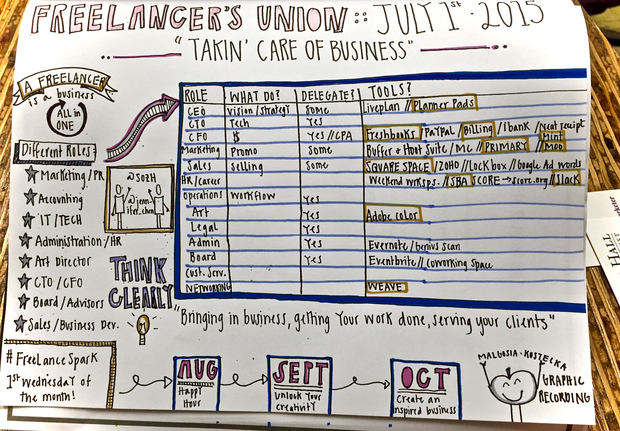 FREELANCER'S UNION :: JULY 1st · 2015
"TAKIN' CARE OF BUSINESS"
A FREELANCER
is a business
All in
ONE
Different Roles:
Marketing/PR
Accounting
IT/TECH
Administration/HR
Art Director
CTO/CFO
Board/Advisors
Sales/Business Dev.
@SOZH
THINK
CLEARLY
ROLE WHAT DO? DELEGATE? TOOLS?
CEO Vision/Strategy Some Liveplan // Planner Pads
CTO Tech Yes
CFO $ Yes // CPA Freshbooks / PAYPAL / Billing / Ibank / Neat receipt
Mint
Marketing Promo Some Buffer + Hoot Suite / MC // PRIMARY // MOO
Sales Selling Some SQUARE SPACE / ZOHO // Lock box // Google Ad words
HR/career Weekend Wrksps. // SBA SCORE → Score.org // Slack
Operations Workflow Yes
Art Yes Adobe color
Legal Yes
Admin Yes Evernote / Genius Scan
Board Yes Eventbrite // Coworking Space
Cust. Serv.
NETWORKING WEAVE
"Bringing in business, getting your work done, serving your clients"
#FreelanceSpark
1st Wednesday of
the month!
AUG
Happy
Hour
SEPT
Unlock Your
Creativity
OCT
Create an
inspired business
MALGOSIA · KOSTECKA
GRAPHIC
RECORDING
HALL